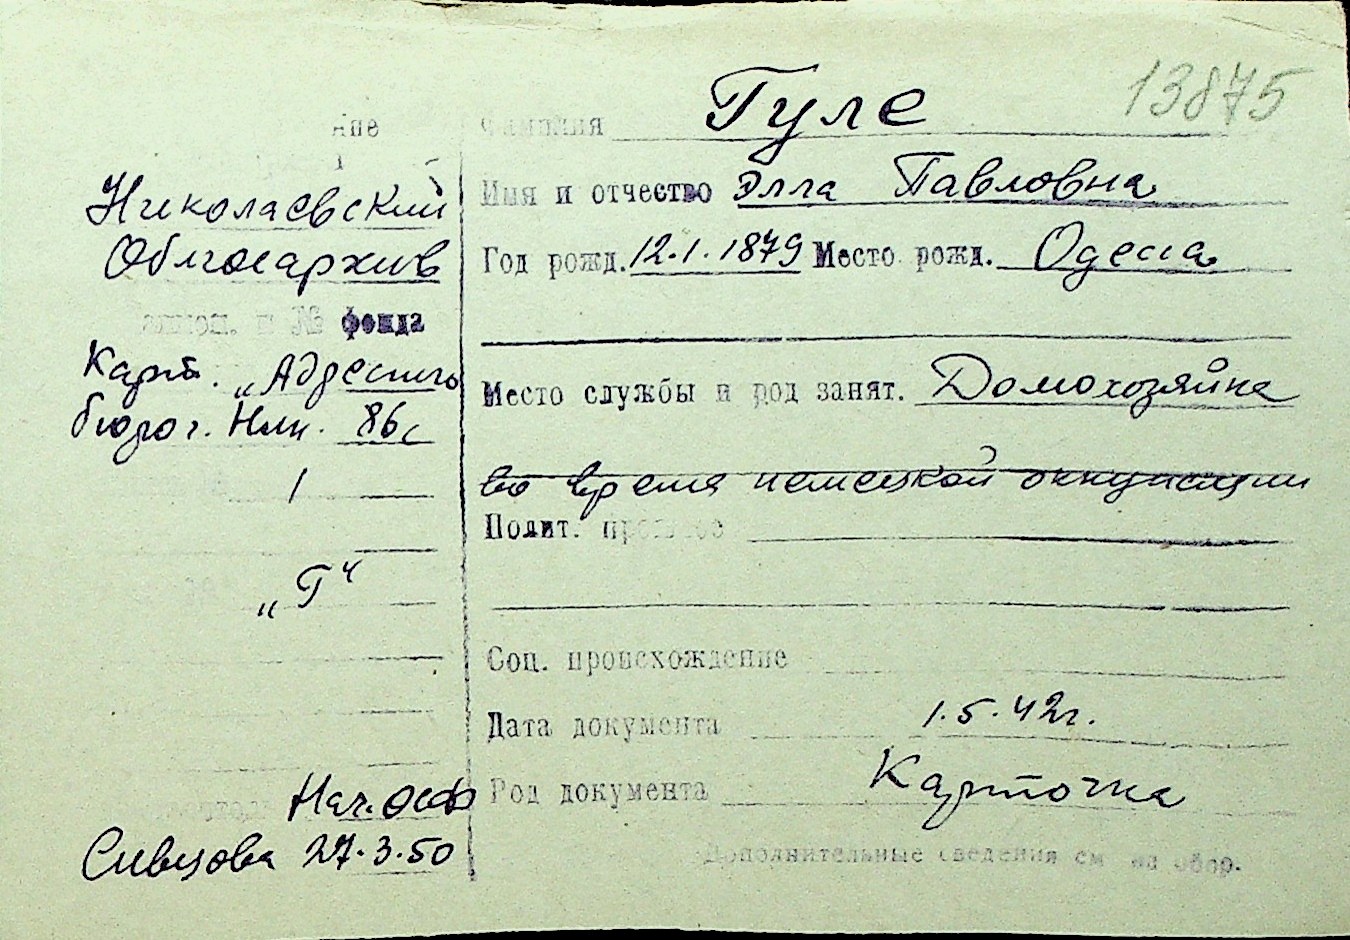 13875
Фамилия Гуле
Имя и отчество Элла Павловна
Год рожд. 12.1.1879 Место рожд. Одесса
Место службы и род занят. Домохозяйка
во время немецкой оккупации
Полит. прогноз
Соц. происхождение
Дата документа 1.5.42г.
Род документа Карточка
Дополнительные сведения см на обор.
Николаевский
Облгосархив
и № фонда
Карт. „Адресного
бюро г. Ник. 86с
1
„Г"
Нач. ОСФ
27.3.50